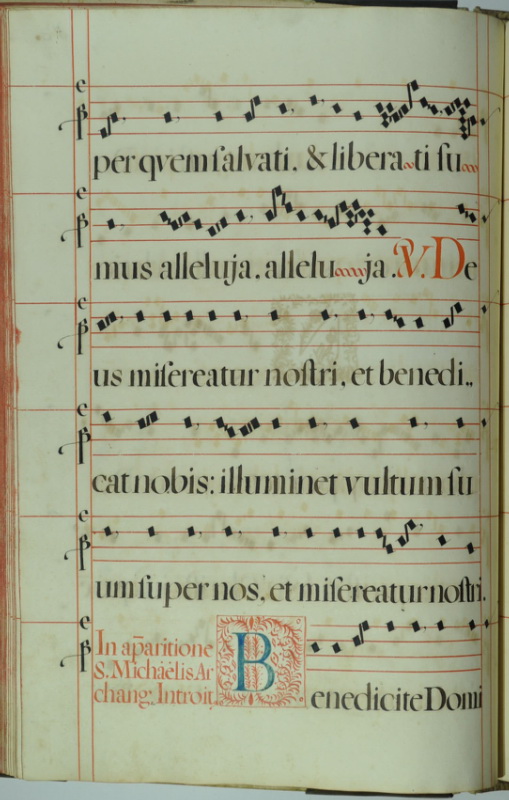 per qvem ſalvati, & libera ti ſu
mus alleluja, allelu ja. V. De
us miſereatur noſtri, et benedi,,
cat nobis: illuminet vultum ſu
um ſuper nos, et miſereatur noſtri.
In ap̄aritione
S. Michaëlis Ar
chang. Introit
Benedicite Domi